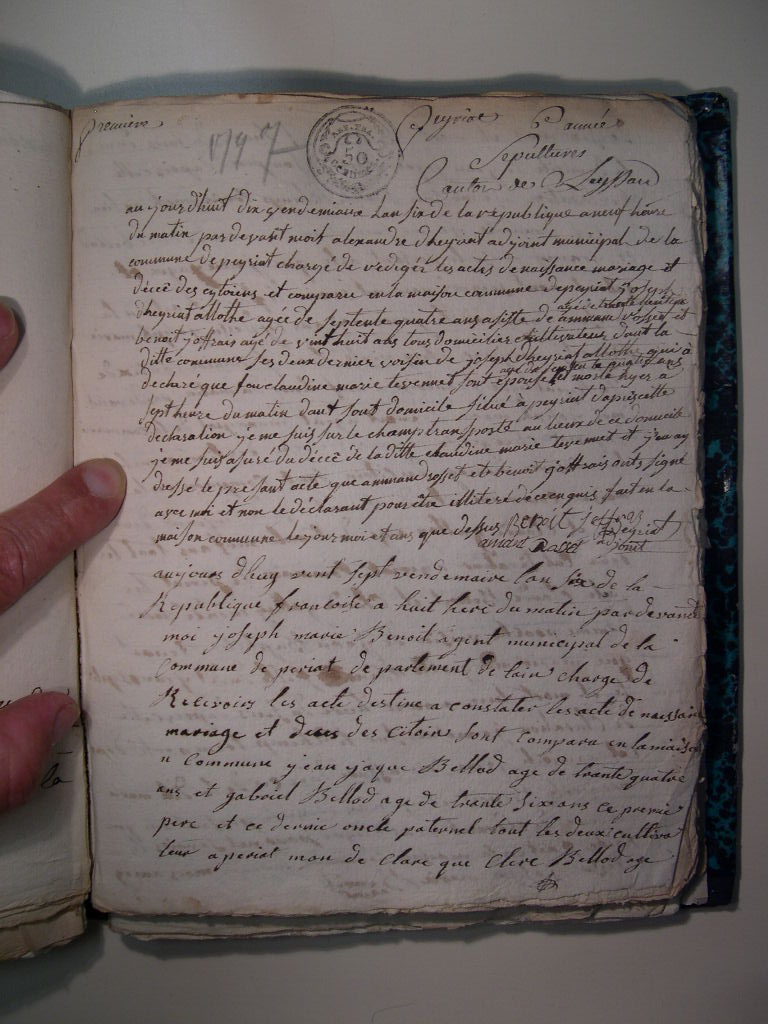 première Peyriat année
1797
50
Sepultures
Canton de Leyssard
aujourdhuit dix vendemiaire lan six de la république a neuf heure
du matin pardevant mois alexandre dheyriat adjoint municipal de la
commune de peyriat chargé de rédiger les actes de naissance mariage et
décé des cytoiens et comparu en la maison commune de peyriat Joseph
dheyriat allothe agée de septente quatre ans asisté de ammant rosset
agé de trante
benoit joffrais agé de vint huit ans tous domiciliés cultivateurs dant la
ditte commune ses deux dernier voisin de joseph dheyriat allothe qui a
declaré que feu claudine marie tevennet sont épouse et morte hyer a
sept heure du matin dant sont domicile situé à peyriat daprés cette
declaration je me suis sur le champ transporté au lieux de ce domicile
je me suis asuré du décé de la ditte claudine marie tevennet et j'en ay
dressé le présant acte que ammand rosset et benoit joffrais onts signé
avec moi et non le déclarant pour être illiteré de ce enquis fait en la
maison commune le jour moi et ans que dessus Benoit jeffres
amant Roset Deyriat
adjoint
aujours dhuy vint sept vendemaire lan six de la
Republique francoise a huit here du matin par devant
moi joseph marie Benoit agint municipal de la
commune de periat departement de lain charge de
Recevoirs les acte destine a constater les acte de naissance
mariage et deces des citoins sont comparu en la maison
n commune jean jaque Bellod age de trante quatre
ans et gabriel Bellod age de trante six ans ce premie
pere et ce dernie oncle paternel tout les deux cultiva
teur a periat mon de clare que clere Bellod age